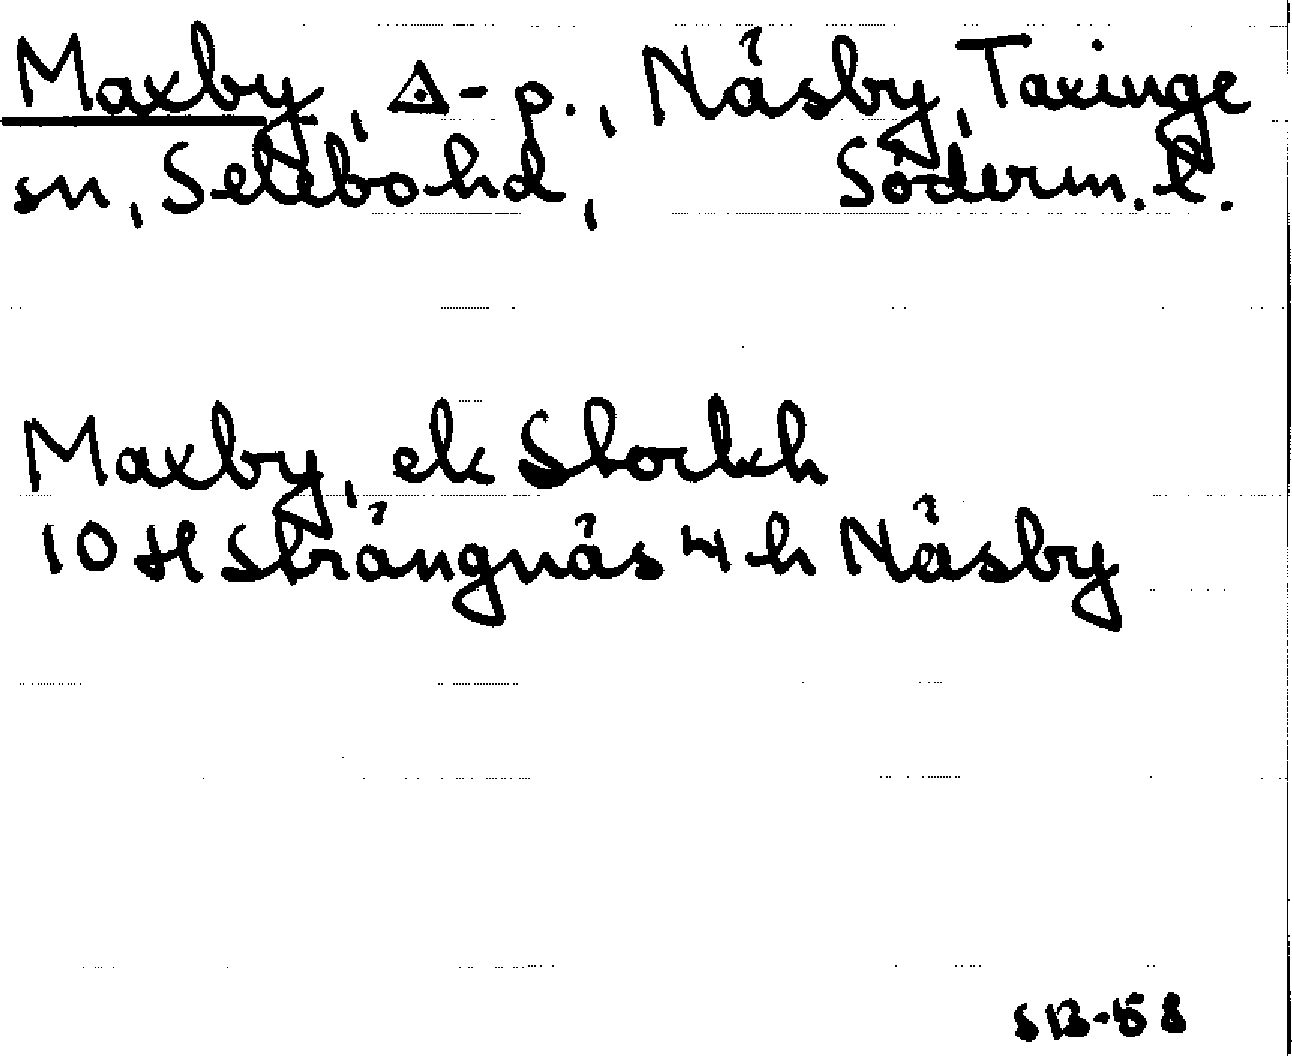 Maxby, △-p., Näsby, Taxinge
sn, Selebo hd, Söderm. l.
Maxby, ek Stockh
10 H Strängnäs 4 h Näsby